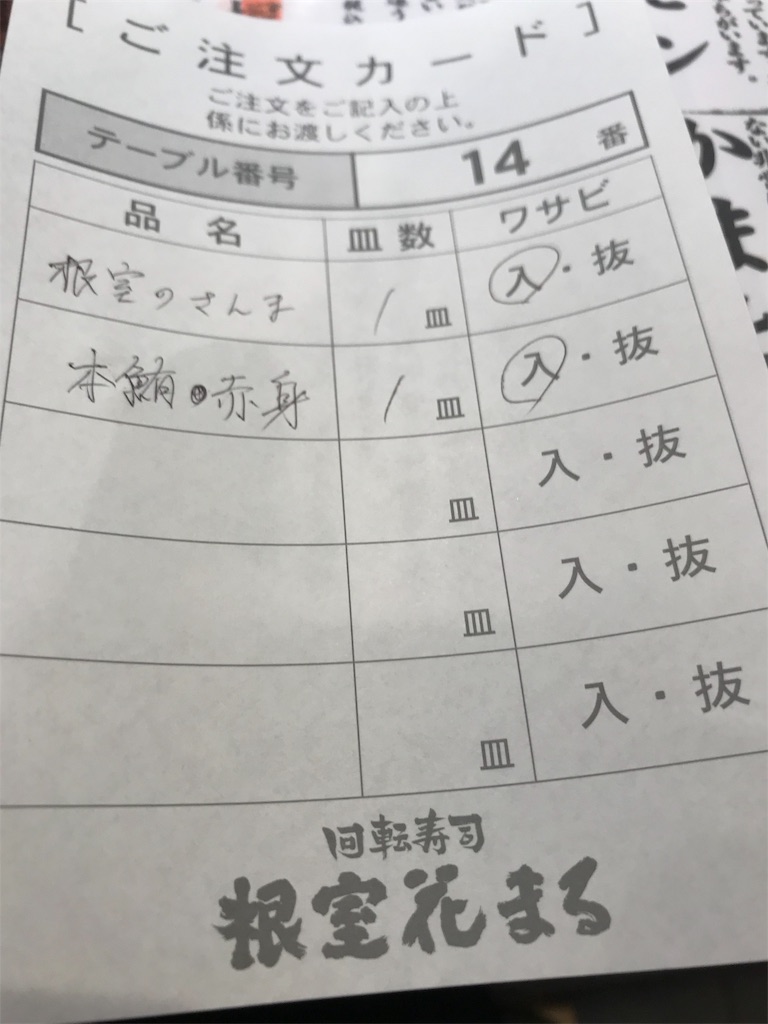 ［ご注文カード］
ご注文をご記入の上
係にお渡しください。
テーブル番号 14 番
品名 皿数 ワサビ
根室のさんま 1 皿 入・抜
本鮪・赤身 1 皿 入・抜
皿 入・抜
皿 入・抜
皿 入・抜
回転寿司
根室花まる